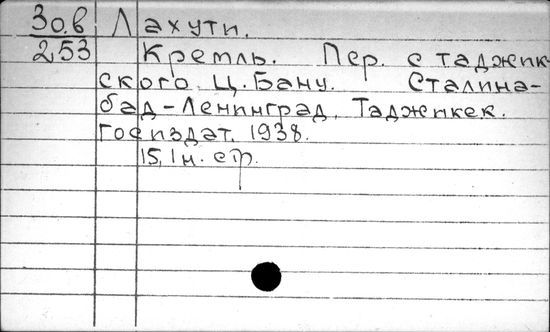 Зо.в Лахути.
253 Кремль. Пер. с таджик-
ского Ц. Бану. Сталина-
бад-Ленинград, Таджикск.
Госиздат, 1938.
15,1н. стр.